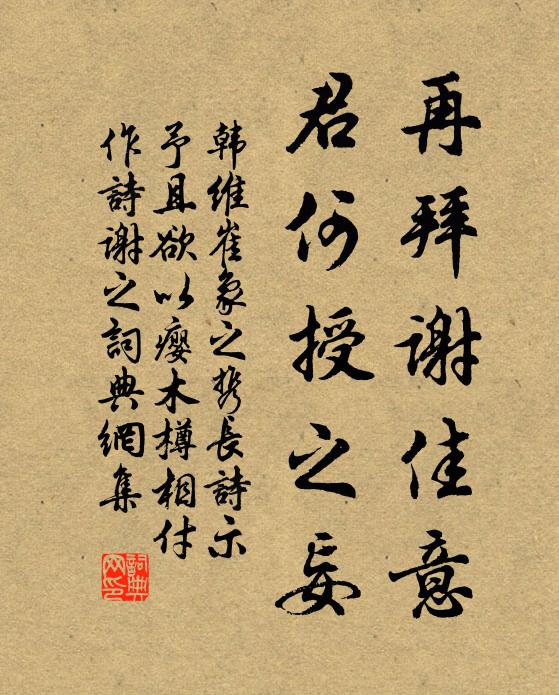 再拜谢佳意
君何授之妄
韩维崔象之携长詩示
予且欲以瘿木樽相付
作詩谢之词典網集
詞典网印